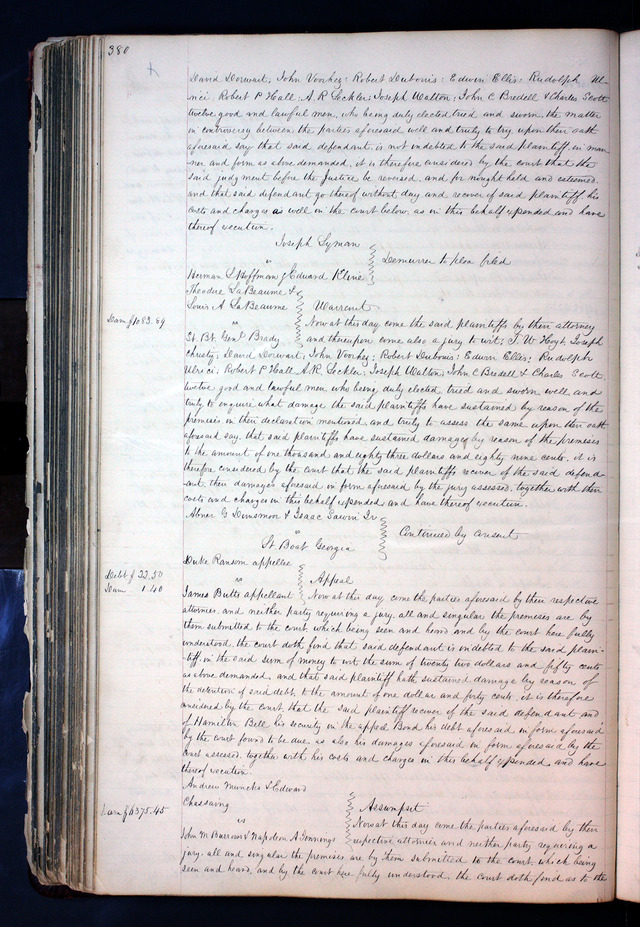 380
David Dorwart, John Voorhez: Robert Dubouis: Edwin Ellis: Rudolph Ul-
rici, Robert P Hall: A. R. Lockler: Joseph Walton; John C Bredell & Charles Scott
twelve good and lawful men, who being duly elected tried and sworn the matter
in controversy between the parties aforesaid well and truly to try, upon their oath
aforesaid say that said defendant is not indebted to the said plaintiff in man-
ner and form as above demanded, it is therefore considered by the court that the
said judgment before the Justice be reversed, and for nought held and esteemed
and that said defendant go thereof without day and recover of said plaintiff his
costs and charges as well in the court below as in this behalf expended and have
thereof execution.
Joseph Lyman
"
Demurrer to plea filed
Herman L Hoffman & Edward Kline
Theodore LaBeaume &
Louis A LaBeaume
Warrant
Dam $1083.89
Now at this day come the said plaintiffs by their attorney
"
St. Bt. Genl Brady
and thereupon come also a jury to wit; T. W. Hoyt Joseph
Christy; David Dorwart; John Voorhez; Robert Dubouis: Edwin Ellis; Rudolph
Ulrici; Robert P Hall A. R. Lockler; Joseph Walton; John C Bredell & Charles Scott
twelve good and lawful men who being duly elected, tried and sworn well and
truly to enquire what damage the said plaintiffs have sustained by reason of the
premises in their declaration mentioned and truly to assess the same upon their oath
aforesaid say, that said plaintiffs have sustained damages by reason of the premises
to the amount of one thousand and eighty three dollars and eighty nine cents. it is
therefore considered by the court that the said plaintiffs recover of the said defend-
ant their damages aforesaid in form aforesaid by the jury assessed, together with their
costs and charges in this behalf expended and have thereof execution.
Abner G Dinsmon & Isaac Sawin Jr
"
Continued by consent
St Boat Georgia
Duke Ransom appellee
Debt $ 22.50
"
Appeal
Dam 1.40
James Butts appellant
Now at this day come the parties aforesaid by their respective
attornies, and neither party requiring a jury, all and singular the premises are by
them submitted to the court, which being seen and heard and by the court here fully
understood, the court doth find that said defendant is indebted to the said plain-
tiff in the said sum of money to wit the sum of twenty two dollars and fifty cents
as above demanded, and that said plaintiff hath sustained damage by reason of
the detention of said debt, to the amount of one dollar and forty cents, it is therefore
considered by the court that the said plaintiff recover of the said defendant and
of Hamilton Bell his security in the appeal Bond his debt aforesaid in form aforesaid
by the court found to be due, as also his damages aforesaid in form aforesaid by the
court assessed, together with his costs and charges in this behalf expended and have
thereof execution.
Andrew Muncks & Edward
Chassaing
Assumpsit
Dam $6375.45
"
Now at this day come the parties aforesaid by their
John M Burrows & Napoleon A Jennings
respective attornies and neither party requiring a
jury, all and singular the premises are by them submitted to the court, which being
seen and heard, and by the court here fully understood, the court doth find as to the